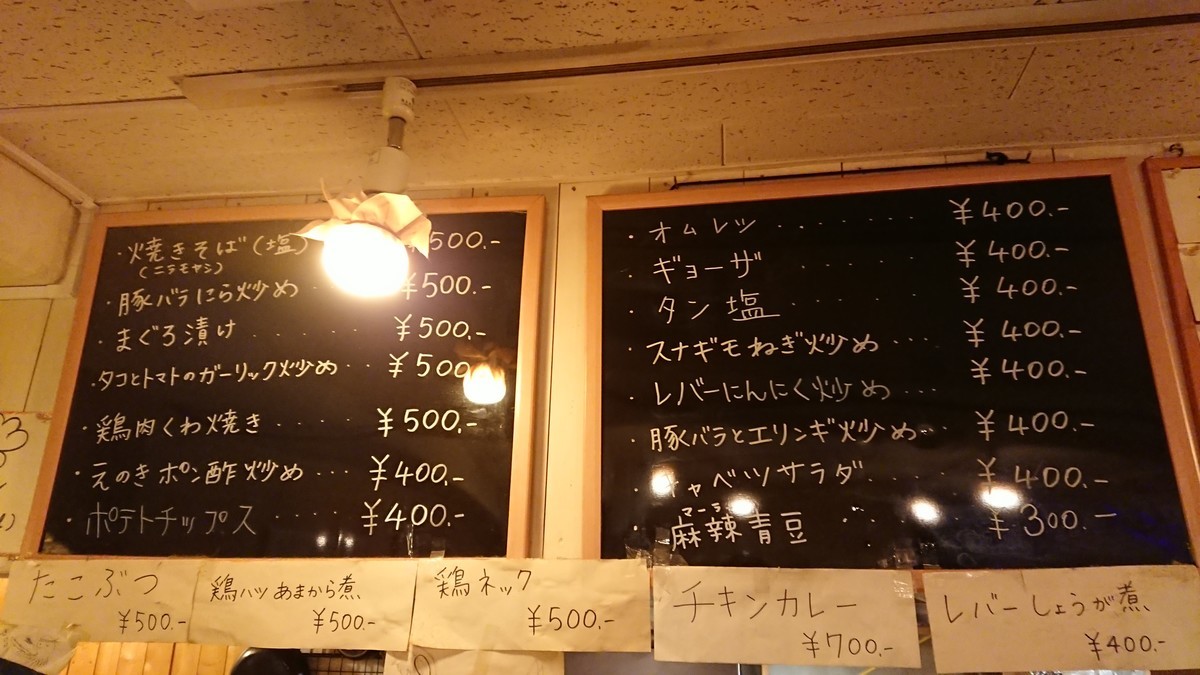 ・焼きそば(塩) ¥500.-
(ニラモヤシ)
・豚バラにら炒め ¥500.-
・まぐろ漬け..... ¥500.-
・タコとトマトのガーリック炒め.. ¥500
・鶏肉くわ焼き..... ¥500.-
・えのきポン酢炒め... ¥400.-
・ポテトチップス ¥400.-
・オムレツ........ ¥400.-
・ギョーザ..... ¥400.-
・タン塩...... ¥400.-
・スナギモねぎ炒め... ¥400.-
・レバーにんにく炒め... ¥400.-
・豚バラとエリンギ炒め... ¥400.-
キャベツサラダ..... ¥400.-
マーラー
麻辣青豆.... ¥300.-
たこぶつ
¥500.-
鶏ハツあまから煮
¥500.-
鶏ネック
¥500.-
チキンカレー
¥700.-
レバーしょうが煮
¥400.-
3